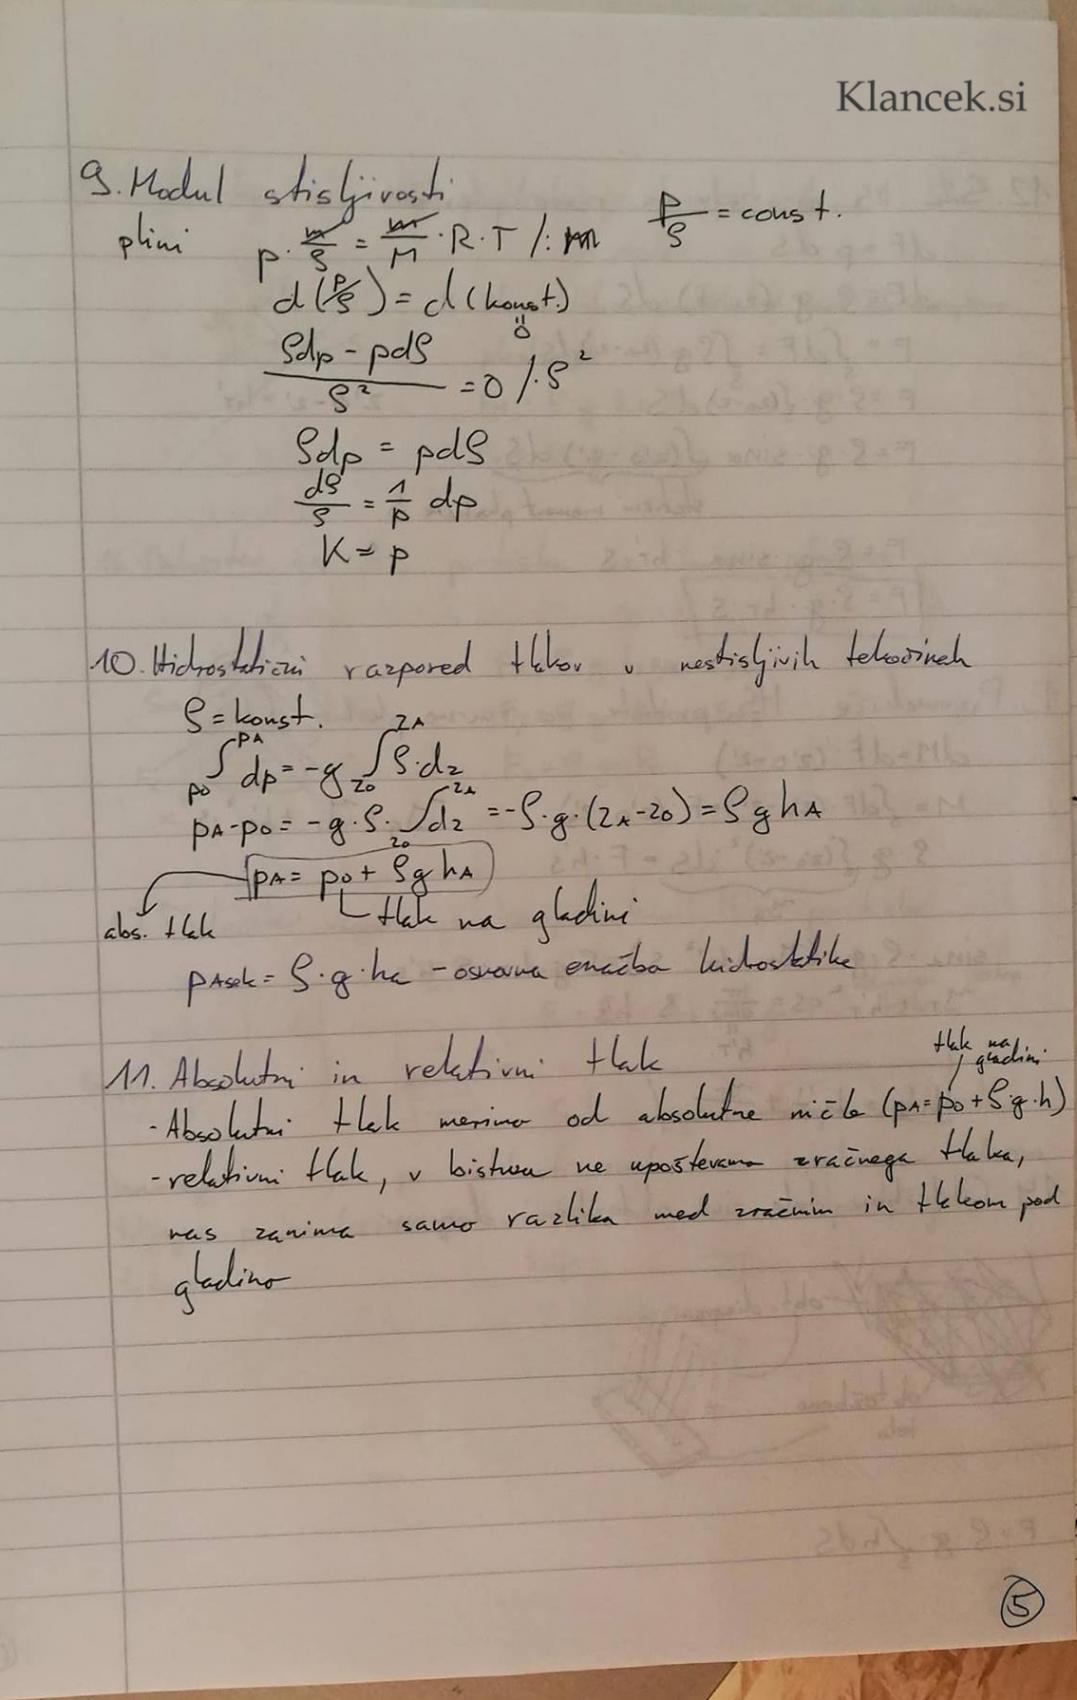 Klancek.si
9. Modul stisljivosti
plini p · m/ρ = m/M · R · T /: m p/ρ = const.
d(p/ρ) = d(konst.)
=0
(ρdp - pdρ)/ρ² = 0 /·ρ²
ρdp = pdρ
dρ/ρ = 1/p dp
K = p
10. Hidrostatični razpored tlakov v nestisljivih tekočinah
ρ = konst.
∫_{p0}^{pA} dp = -g ∫_{z0}^{zA} ρ·dz
pA-p0 = -g·ρ·∫_{z0}^{zA} dz = -ρ·g·(zA-z0) = ρghA
pA = p0 + ρghA
abs. tlak
tlak na gladini
ρ·g·ha - osnovna enačba hidrostatike
11. Absolutni in relativni tlak
tlak na gladini
-Absolutni tlak merimo od absolutne ničle (pA = p0 + ρ·g·h)
-relativni tlak, v bistvu ne upoštevamo zračnega tlaka,
nas zanima samo razlika med zračnim in tlakom pod
gladino
5